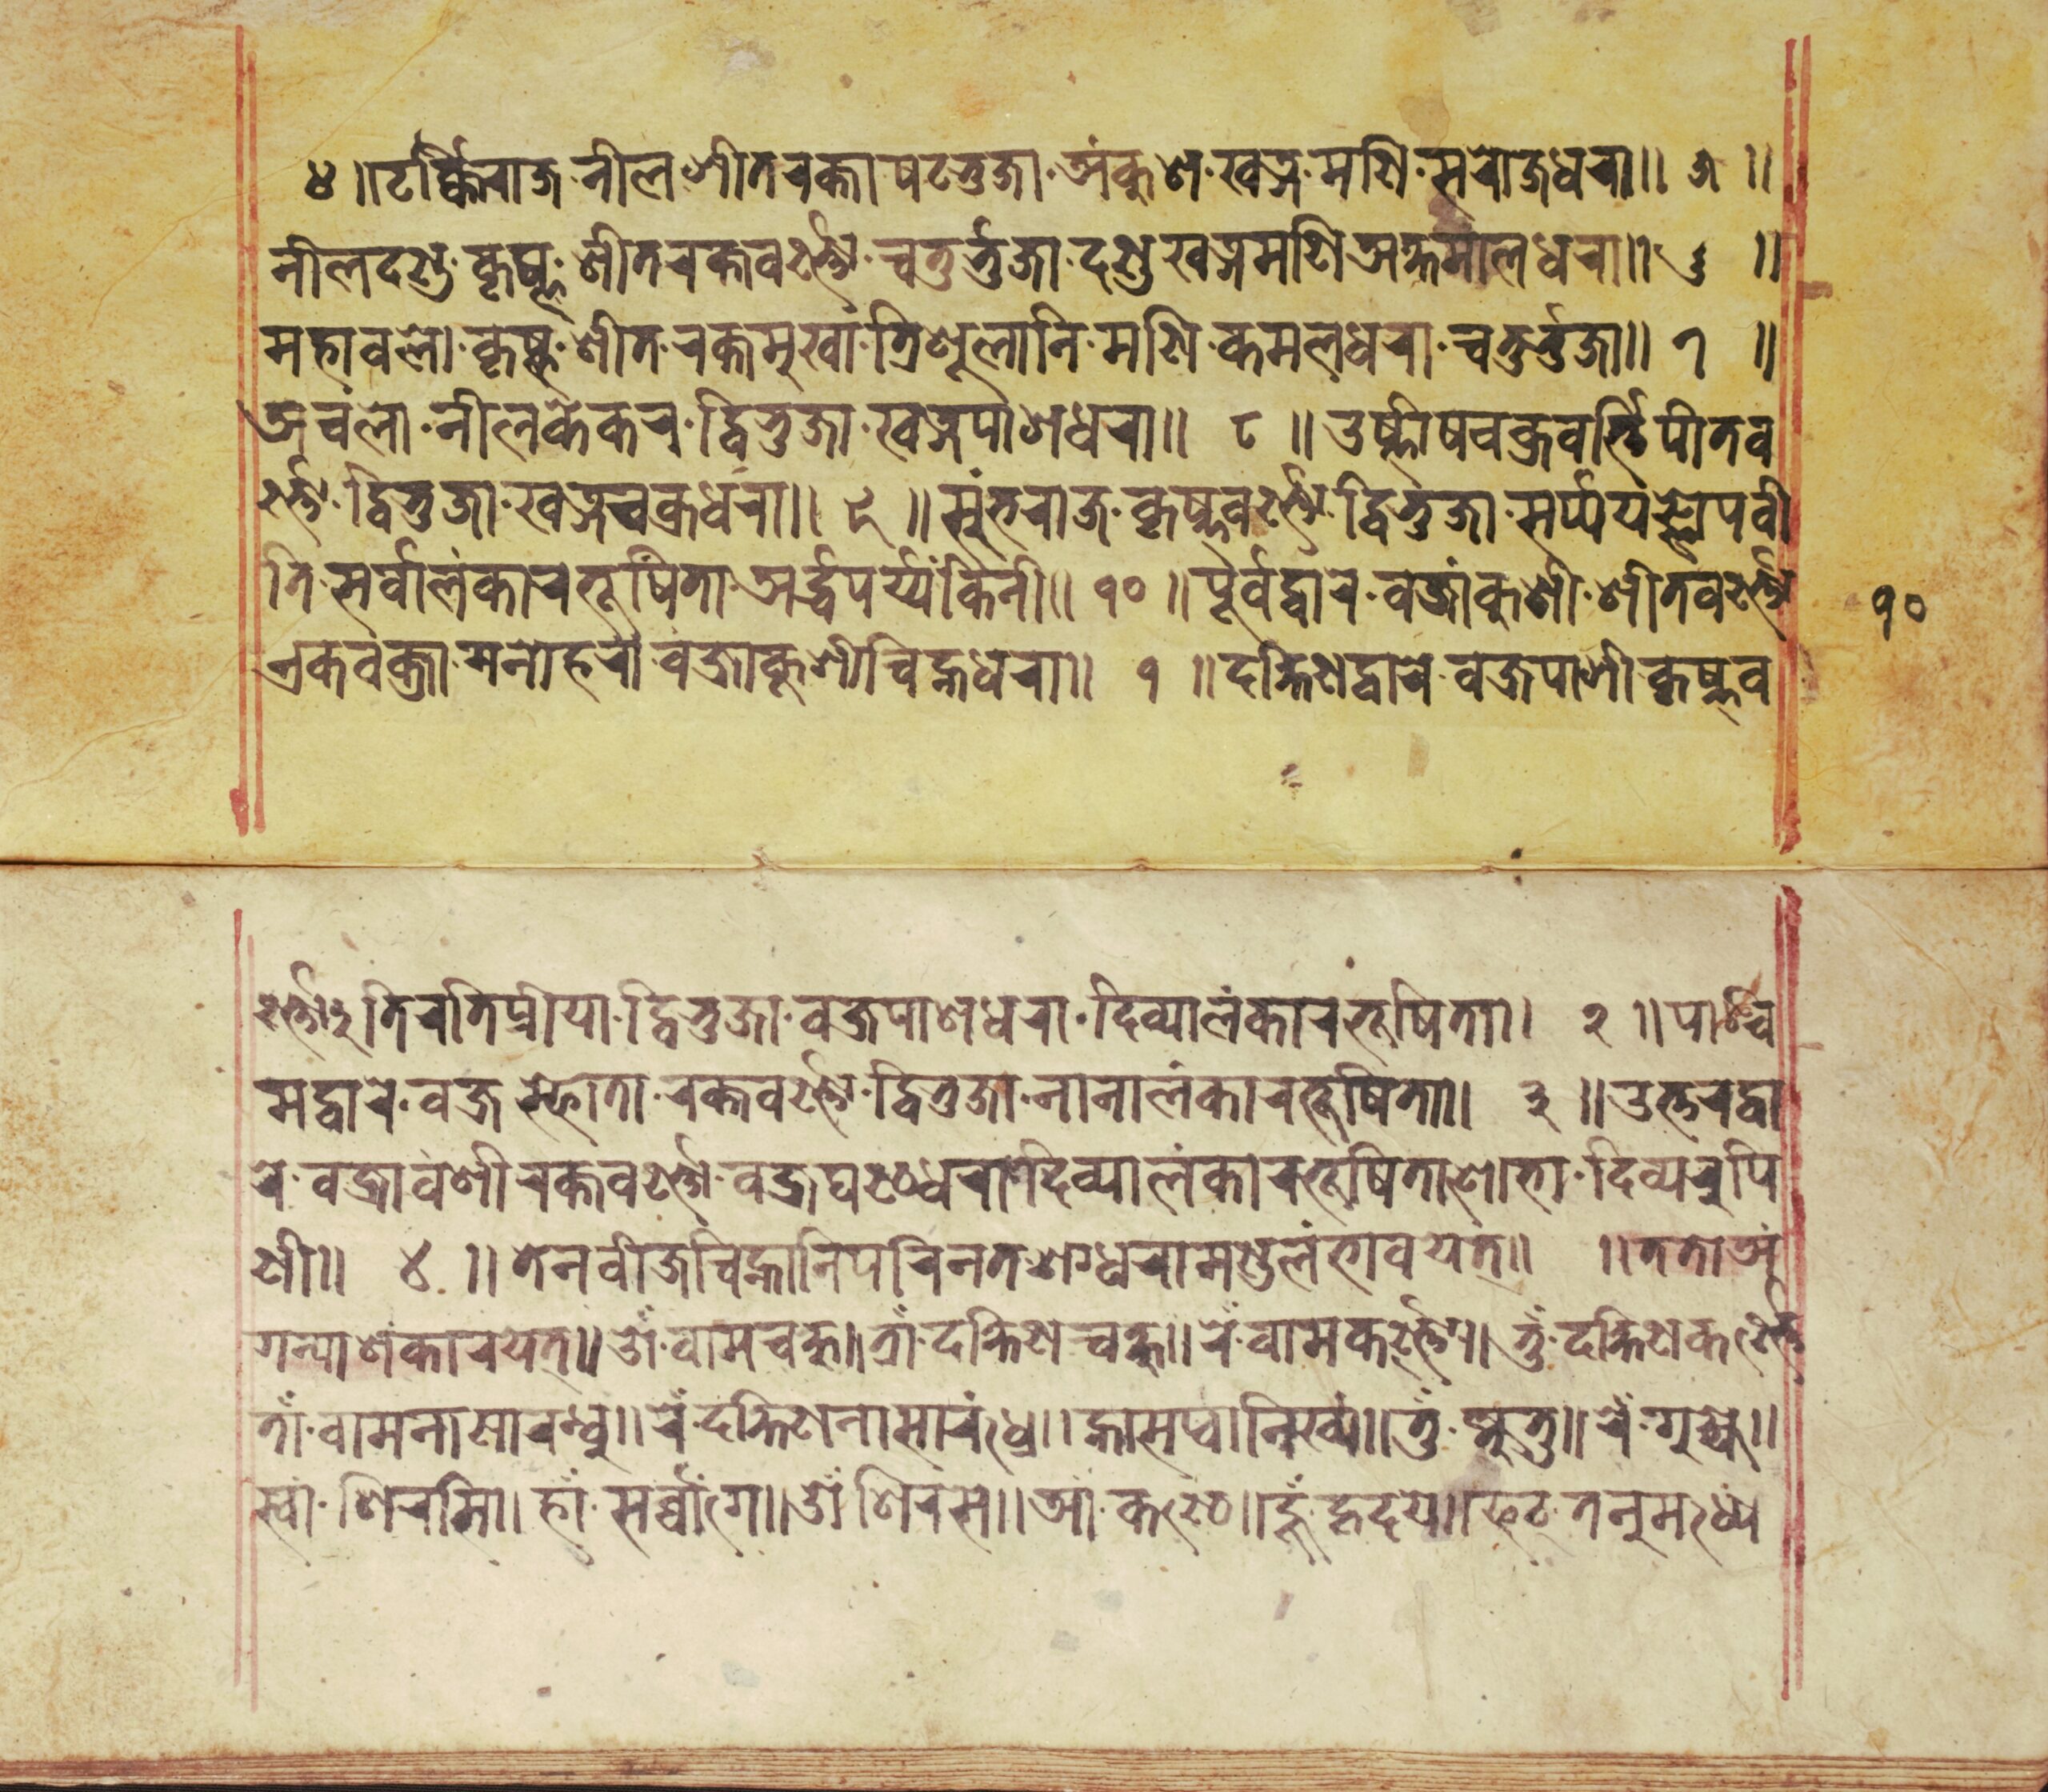 ४ ॥ टर्क्किराज · नील शीत रक्ता षटभुजा · अंकुश · खड्ग · मणि · सरोजधरा ॥ ५ ॥
नीलदण्ड · कृष्ण · शीत रक्तवर्ण्णा · चतुर्भुजा · दण्ड खड्गमणिअक्षमालधरा ॥ ६ ॥
महावलो · कृष्ण · शीत · रक्तमुखां · त्रिशूलानि · मणि · कमलधरा · चतुर्भुजा ॥ ७ ॥
अचंलो · नीलकेकर · द्विभुजा · खड्गपाशधरा ॥ ८ ॥ उर्ष्णीषचक्रवर्त्ति पीतव
र्ण्णा · द्विभुजा · खड्गचक्रधरा ॥ ९ ॥ सुंभराज · कृष्णवर्ण्णा · द्विभुजा · सर्प्पयज्ञोपवी
ति · सर्वालंकारभूषिता · अर्द्धपर्य्यंकिनी ॥ १० ॥ पूर्वद्वारे · वज्रांकुशी · शीतवर्ण्णा
१०
एकवक्त्रा · मनोहरा · वज्राकूशीचिह्नधरा ॥ १ ॥ दक्षिणद्वारे · वज्रपाशी · कृष्णव
र्ण्णा तिरतिप्रीया · द्विभुजा · वज्रपाशधरा · दिव्यालंकारभूषिता ॥ २ ॥ पश्चि
मद्वारे · वज्रस्फोता · रक्तवर्ण्णा · द्विभुजा · नानालंकारभूषिता ॥ ३ ॥ उत्तरद्वा
रे · वज्रावंशी रक्तवर्ण्णा · वज्रघण्ठधरा दिव्यालंकारभूषिता शोभा · दिव्यरुपि
णी ॥ ४ ॥ तेनवीजचिह्नानिपरिनत मण्डलंभावयेत् ॥ ॥ ततो अं
गन्याशंकारयेत् ॥ ओं · वामचक्षु ॥ त्रां · दक्षिणचक्षु ॥ रें · वामकर्ण्ण ॥ तुं · दक्षिणकर्ण्ण
तां · वामनासारन्ध्र ॥ रें · दक्षिणनासारंध्र ॥ तुं · ॥ रें · गुह्ये ॥
स्वां · शिरसि ॥ हां · सर्व्वांगे ॥ ओं शिरसे ॥ आं · कण्ठ ॥ हूं हृदये ॥ फट् · तनुमध्यं